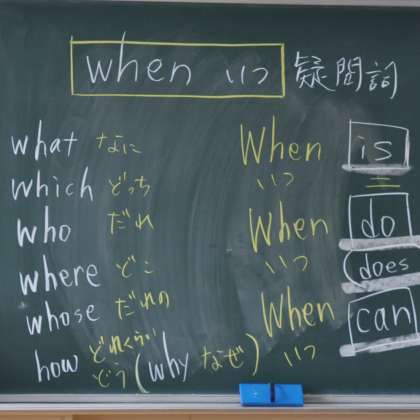 when いつ 疑問詞
what なに
which どっち
who だれ
where どこ
whose だれの
how どれくらい どう (why なぜ)
When is
いつ
When do
いつ (does
When can
いつ